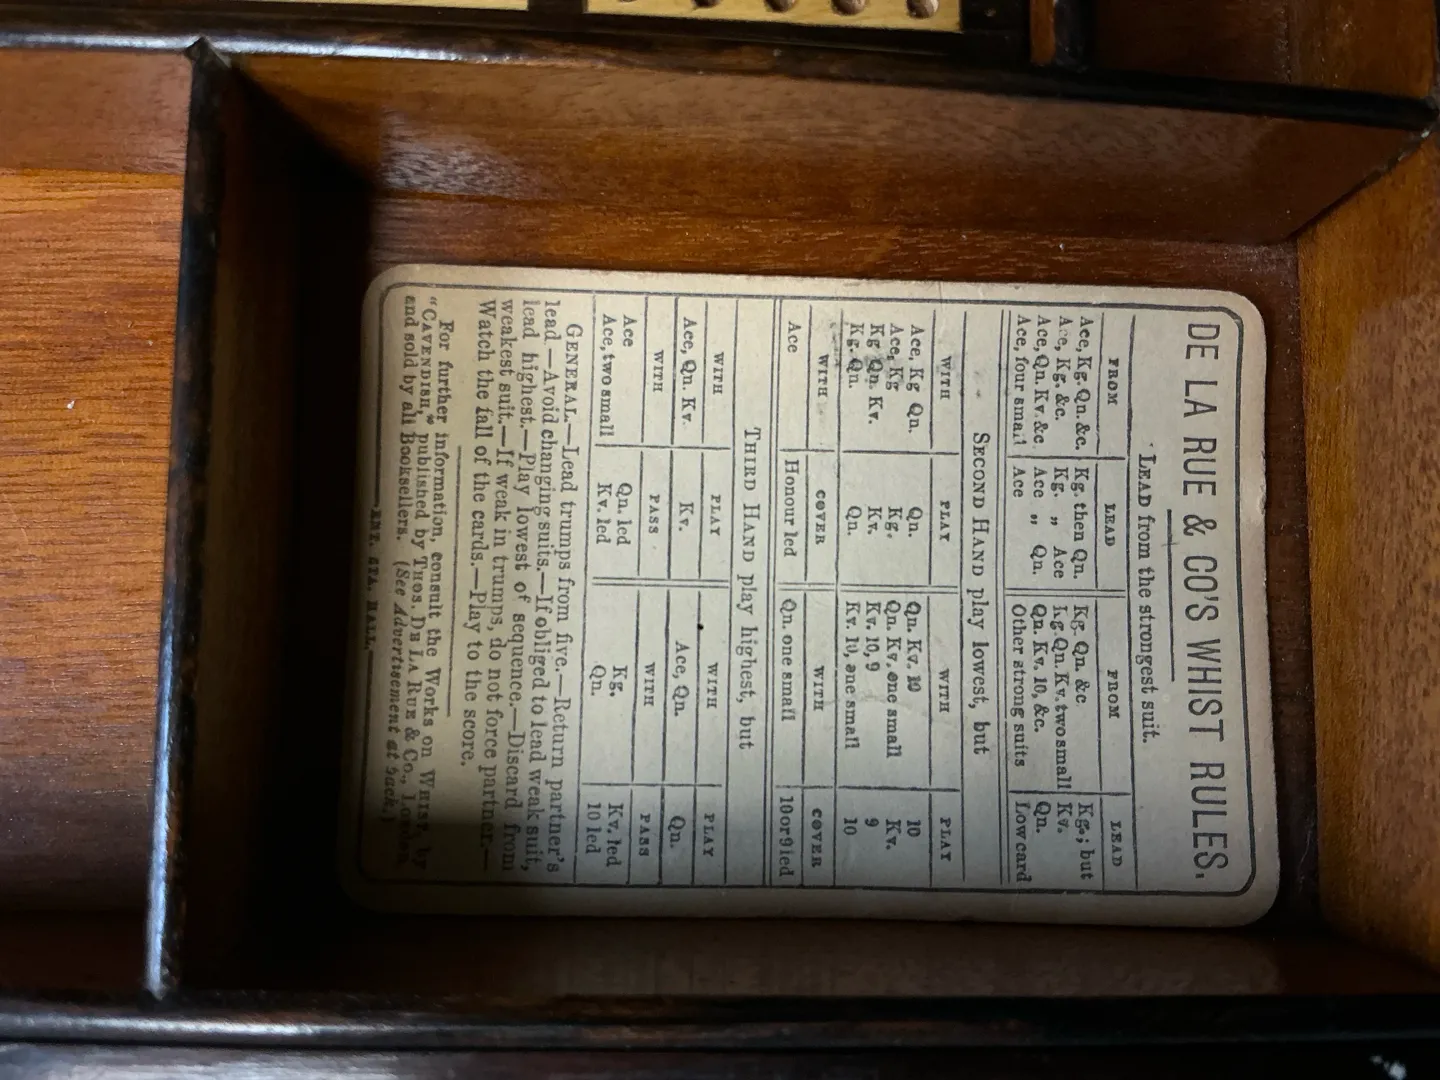 DE LA RUE & CO'S WHIST RULES.
LEAD from the strongest suit.
FROM LEAD FROM LEAD
Ace, Kg. Qn. &c. Kg. then Qn. Kg. Qn. &c Kg.; but
Ace, Kg. &c. Kg. „ Ace Kg. Qn. Kv. two small Kv.
Ace, Qn. Kv. &c. Ace „ Qn. Qn. Kv. 10, &c. Qn.
Ace, four small Ace Other strong suits Low card
SECOND HAND play lowest, but
WITH PLAY WITH PLAY
Ace, Kg Qn. Qn. Qn. Kv. 10 10
Ace, Kg Kg. Qn. Kv. one small Kv.
Kg Qn. Kv. Kv. Kv. 10, 9 9
Kg. Qn. Qn. Kv. 10, one small 10
WITH COVER WITH COVER
Ace Honour led Qn. one small 10 or 9 led
THIRD HAND play highest, but
WITH PLAY WITH PLAY
Ace, Qn. Kv. Kv. Ace, Qn. Qn.
WITH PASS WITH PASS
Ace Qn. led Kg. Kv. led
Ace, two small Kv. led Qn. 10 led
GENERAL.—Lead trumps from five.—Return partner's
lead.—Avoid changing suits.—If obliged to lead weak suit,
lead highest.—Play lowest of sequence.—Discard from
weakest suit.—If weak in trumps, do not force partner.—
Watch the fall of the cards.—Play to the score.
For further information, consult the Works on WHIST, by
"CAVENDISH," published by THOS. DE LA RUE & CO., LONDON,
and sold by all Booksellers. (See Advertisement at back.)
ENT. STA. HALL.